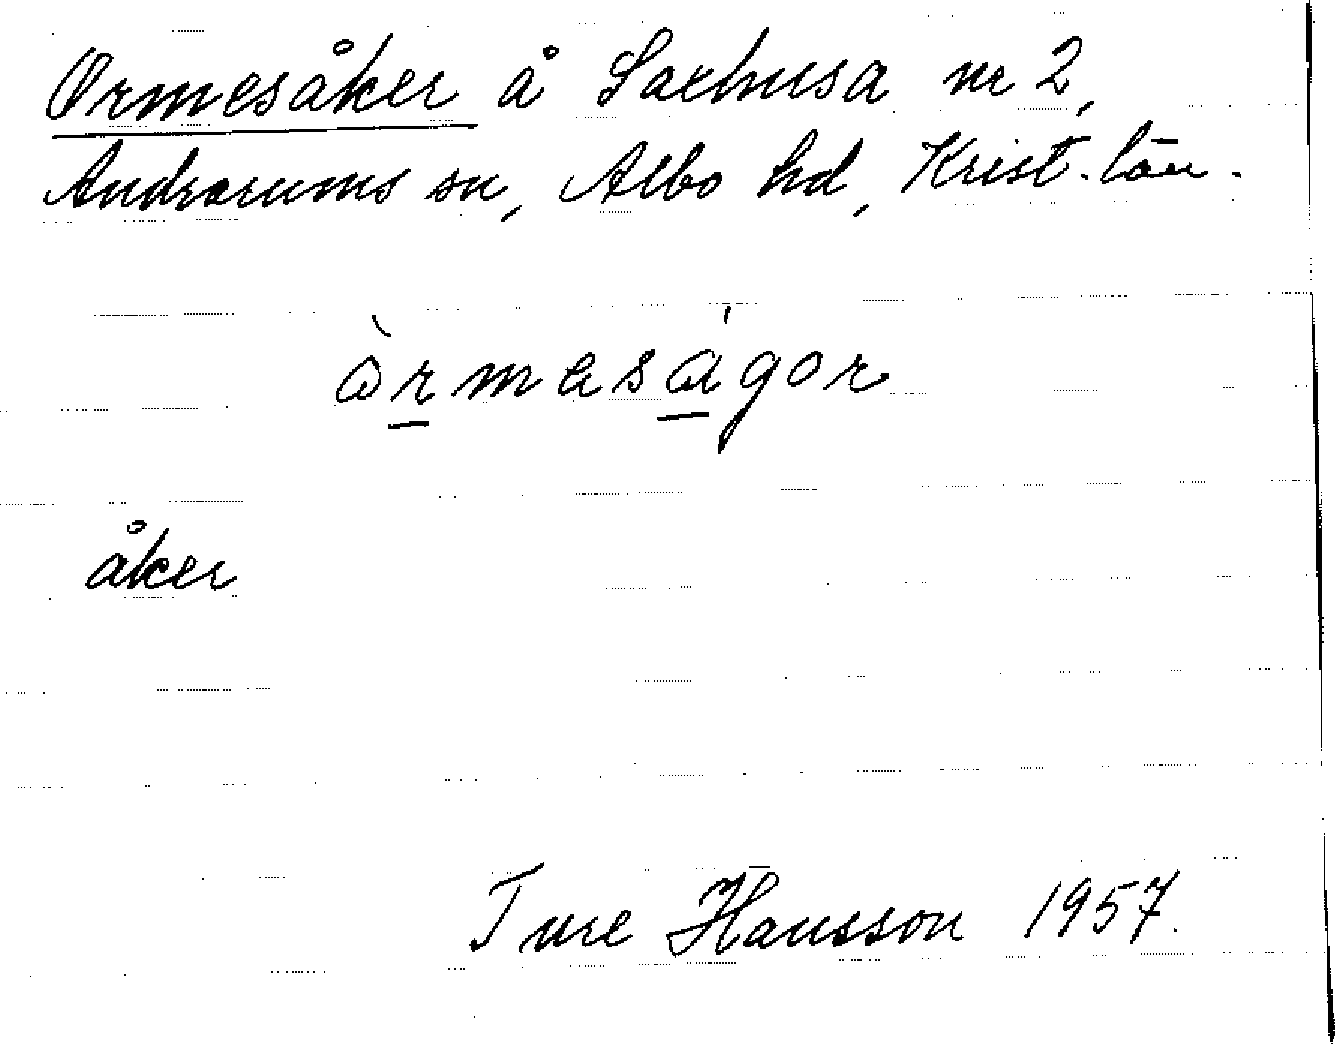 Ormesåker å Saxhusa nr 2,
Andrarums sn, Albo hd, Krist. län.
òrmeságor
åker
Ture Hansson 1957.